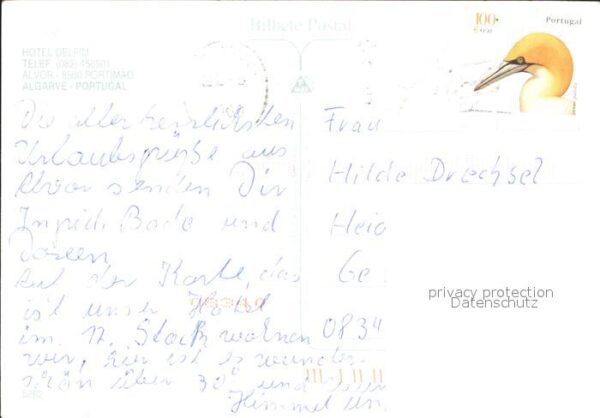 Bilhete Postal
HOTEL DELFIM
TELEF. (082)
ALVOR - 8500 PORTIMAO
ALGARVE - PORTUGAL
100
Portugal
Die allerherzlichsten
Urlaubsgrüße aus
Alvor senden Dir
Ingrid, Bodo und
Doreen
Auf der Karte, das
ist unser Hotel
im 12. Stock wohnen
wir, hier ist es wunder-
schön über 30° und
Himmel un
Frau
Hilde Drechsel
Heid
Ge
0834
privacy protection
Datenschutz